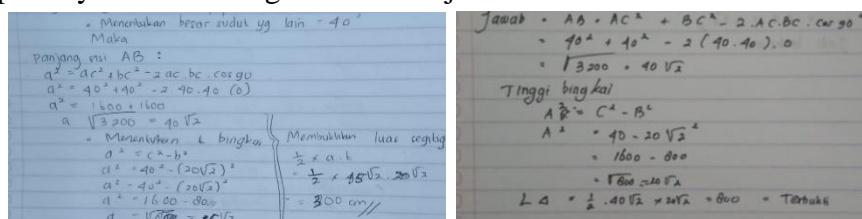 • Menentukan besar sudut yg lain = 40°
Maka
Panjang sisi AB :
a² = ac² + bc² - 2 ac . bc . cos 90
a² = 40² + 40² - 2 . 40 . 40 (0)
a² = 1600 + 1600
a √3200 = 40√2
• Menentukan t bingkai
a² = c² - b²
a² = 40² - (20√2)²
a² = 40² - (20√2)²
a² = 1600 - 800
Membuktikan luas segitig
½ x a . t
= ½ x 45√2 . 20√2
= 300 cm //
Jawab • AB = AC² + BC² - 2 . AC . BC . cos 90°
= 40² + 40² - 2 (40 . 40) . 0
= √3200 = 40√2
Tinggi bingkai
A² = C² - B²
A² = 40 - 20√2²
= 1600 - 800
= √800 = 20√2
L ∆ = ½ . 40√2 x 20√2 = 800 = Terbukti